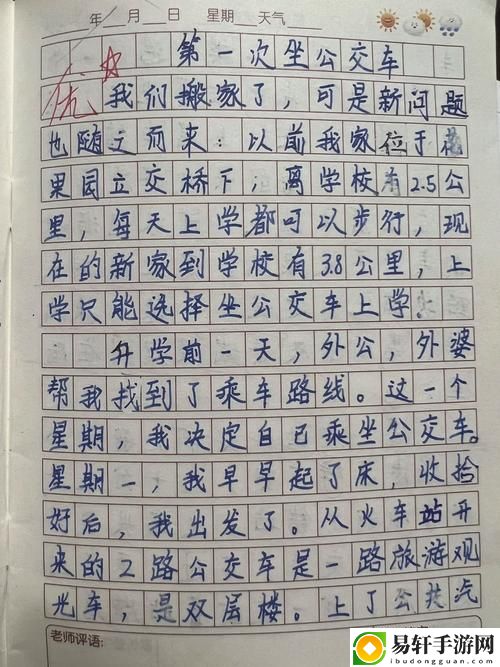 年 月 日 星期 天气
第一次坐公交车
优
我们搬家了，可是新问题
也随之而来：以前我家位于花
果园立交桥下，离学校有2.5公
里，每天上学都可以步行，现
在的新家到学校有3.8公里，上
学只能选择坐公交车上学。
升学前一天，外公，外婆
帮我找到了乘车路线。过一个
星期，我决定自己乘坐公交车。
星期一，我早早起了床，收拾
好后，我出发了。从火车站开
来的2路公交车是一路旅游观
光车，是双层楼。上了公共汽
老师评语:
易轩手游网
ibudongguan.com